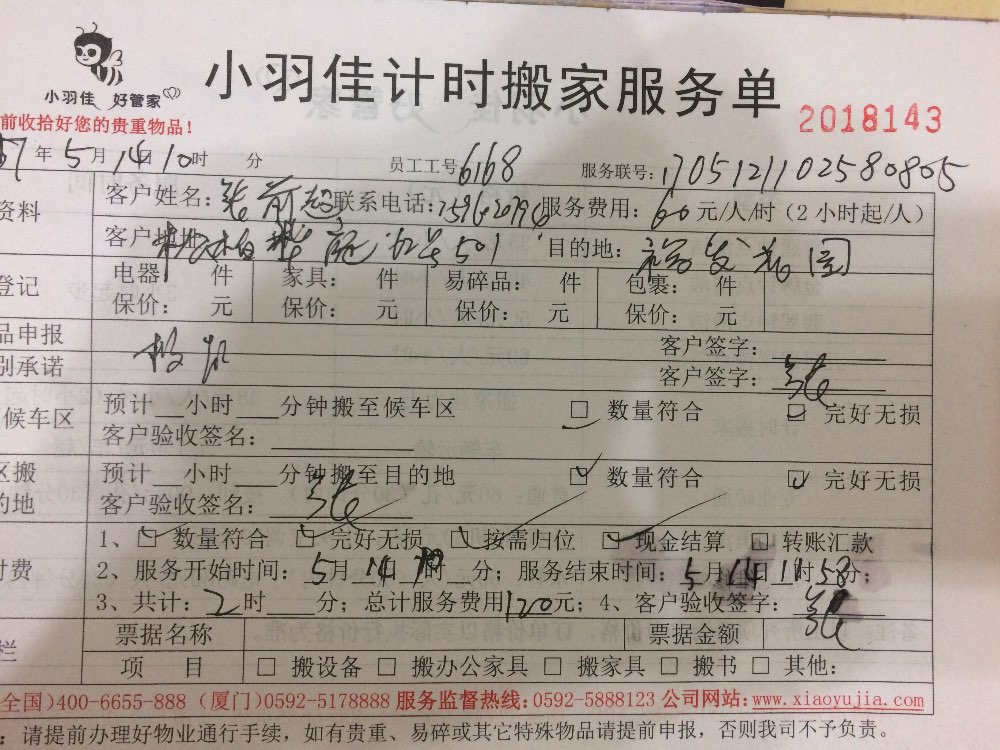 小羽佳 好管家
小羽佳计时搬家服务单
前收拾好您的贵重物品！
2018143
年5月14日10时 分 员工工号6168 服务联号：170512110258080805
资料 客户姓名： 联系电话： 服务费用：60元/人/时（2小时起/人）
客户地址： 501 目的地：
登记 电器 件 家具： 件 易碎品： 件 包裹： 件
保价： 元 保价： 元 保价： 元 保价： 元
品申报 客户签字：
别承诺 客户签字： 张
候车区 预计__小时___分钟搬至候车区 □ 数量符合 完好无损
客户验收签名：
区搬 预计__小时___分钟搬至目的地 数量符合 完好无损
的地 客户验收签名： 张
1、 数量符合 完好无损 按需归位 现金结算 转账汇款
付费 2、服务开始时间：5月14日 时 分；服务结束时间：5月14日11时58分；
3、共计：2时___分；总计服务费用120元；4、客户验收签字： 张
票据名称 票据金额
栏 项 目 □ 搬设备 □ 搬办公家具 □ 搬家具 □ 搬书 □ 其他：
全国)400-6655-888 (厦门)0592-5178888 服务监督热线：0592-5888123 公司网站：www.xiaoyujia.com
：请提前办理好物业通行手续，如有贵重、易碎或其它特殊物品请提前申报，否则我司不予负责。